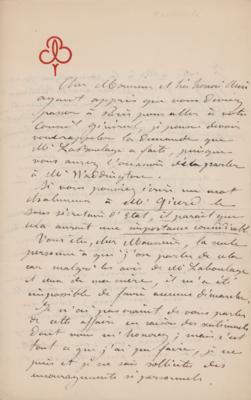 Cher Monsieur et très honoré Ami
ayant appris que vous devez
passer à Paris pour aller à votre
Conseil général, je pense devoir
vous rappeler la demande que
Mr Laboulaye a faite, puisque
vous aurez l'occasion de la parler
à Mr Waddington.
Si vous pouviez écrire un mot
absolument à Mr Girerd le
sous secrétaire d'État, il paraît que
cela aurait une importance considérable
Vous êtes, cher Monsieur, la seule
personne à qui j'ose parler de cela
car malgré les avis de Mr Laboulaye
et ceux de ma mère, il m'a été
impossible de faire aucune démarche.
Je n'ai pas craint de vous parler
de cette affaire en raison des sentiments
dont vous m'honorez ; mais c'est
tout ce que j'ai pu faire, je ne
puis et je ne sais solliciter des
encouragements si personnels